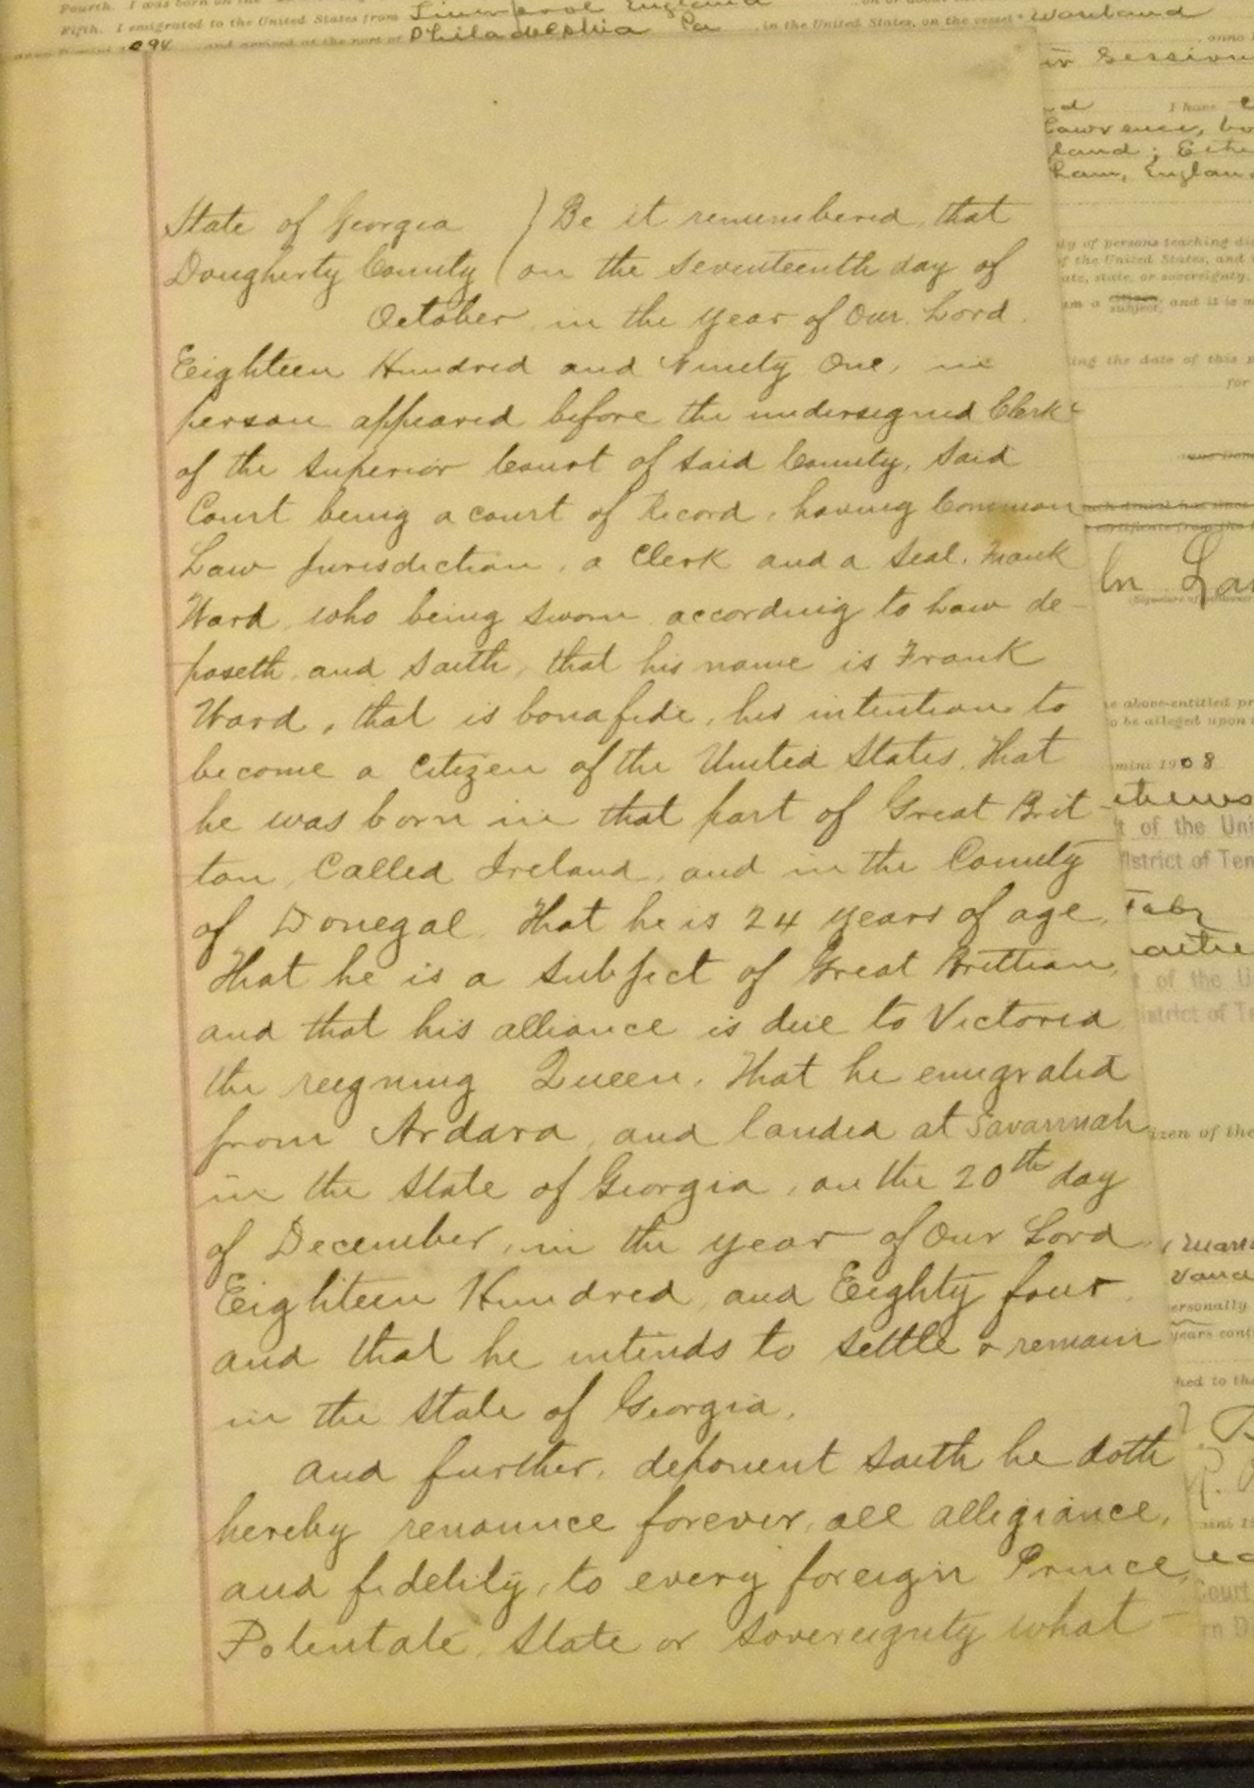 Fourth. I was born on the
Fifth. I emigrated to the United States from Liverpool England on or about
and arrived at the port of Philadelphia Pa, in the United States, on the vessel Westland
State of Georgia ) Be it remembered, that
Dougherty County ( on the seventeenth day of
October, in the year of Our Lord
Eighteen Hundred and Ninety One, in
person appeared before the undersigned Clerk
of the Superior Court of said County, said
Court being a court of Record, having Common
Law Jurisdiction, a Clerk and a seal. Frank
Ward, who being sworn according to Law de-
poseth and saith, that his name is Frank
Ward, that is bonafide, his intention to
become a citizen of the United States. That
he was born in that part of Great Brit-
ton, Called Ireland, and in the County
of Donegal. That he is 24 years of age,
That he is a subject of Great Brittian,
and that his alliance is due to Victoria
the reigning Queen. That he emigrated
from Ardara, and landed at Savannah
in the State of Georgia, on the 20th day
of December, in the year of Our Lord
Eighteen Hundred, and Eighty four
and that he intends to settle & remain
in the State of Georgia.
and further, deponent saith he doth
hereby renounce forever, all allegiance,
and fidelity, to every foreign Prince,
Potentate, State or sovereignty what-
ir Session
I have
Lawrence,
land;
ham, England
of persons teaching
of the United States, and
state, or sovereignty,
subject; and it is
ing the date of this
for
Ln
above-entitled
be alleged upon
1908
of the
District of Ten
Feby
of the
District of
of the
personally
years
to the
Court